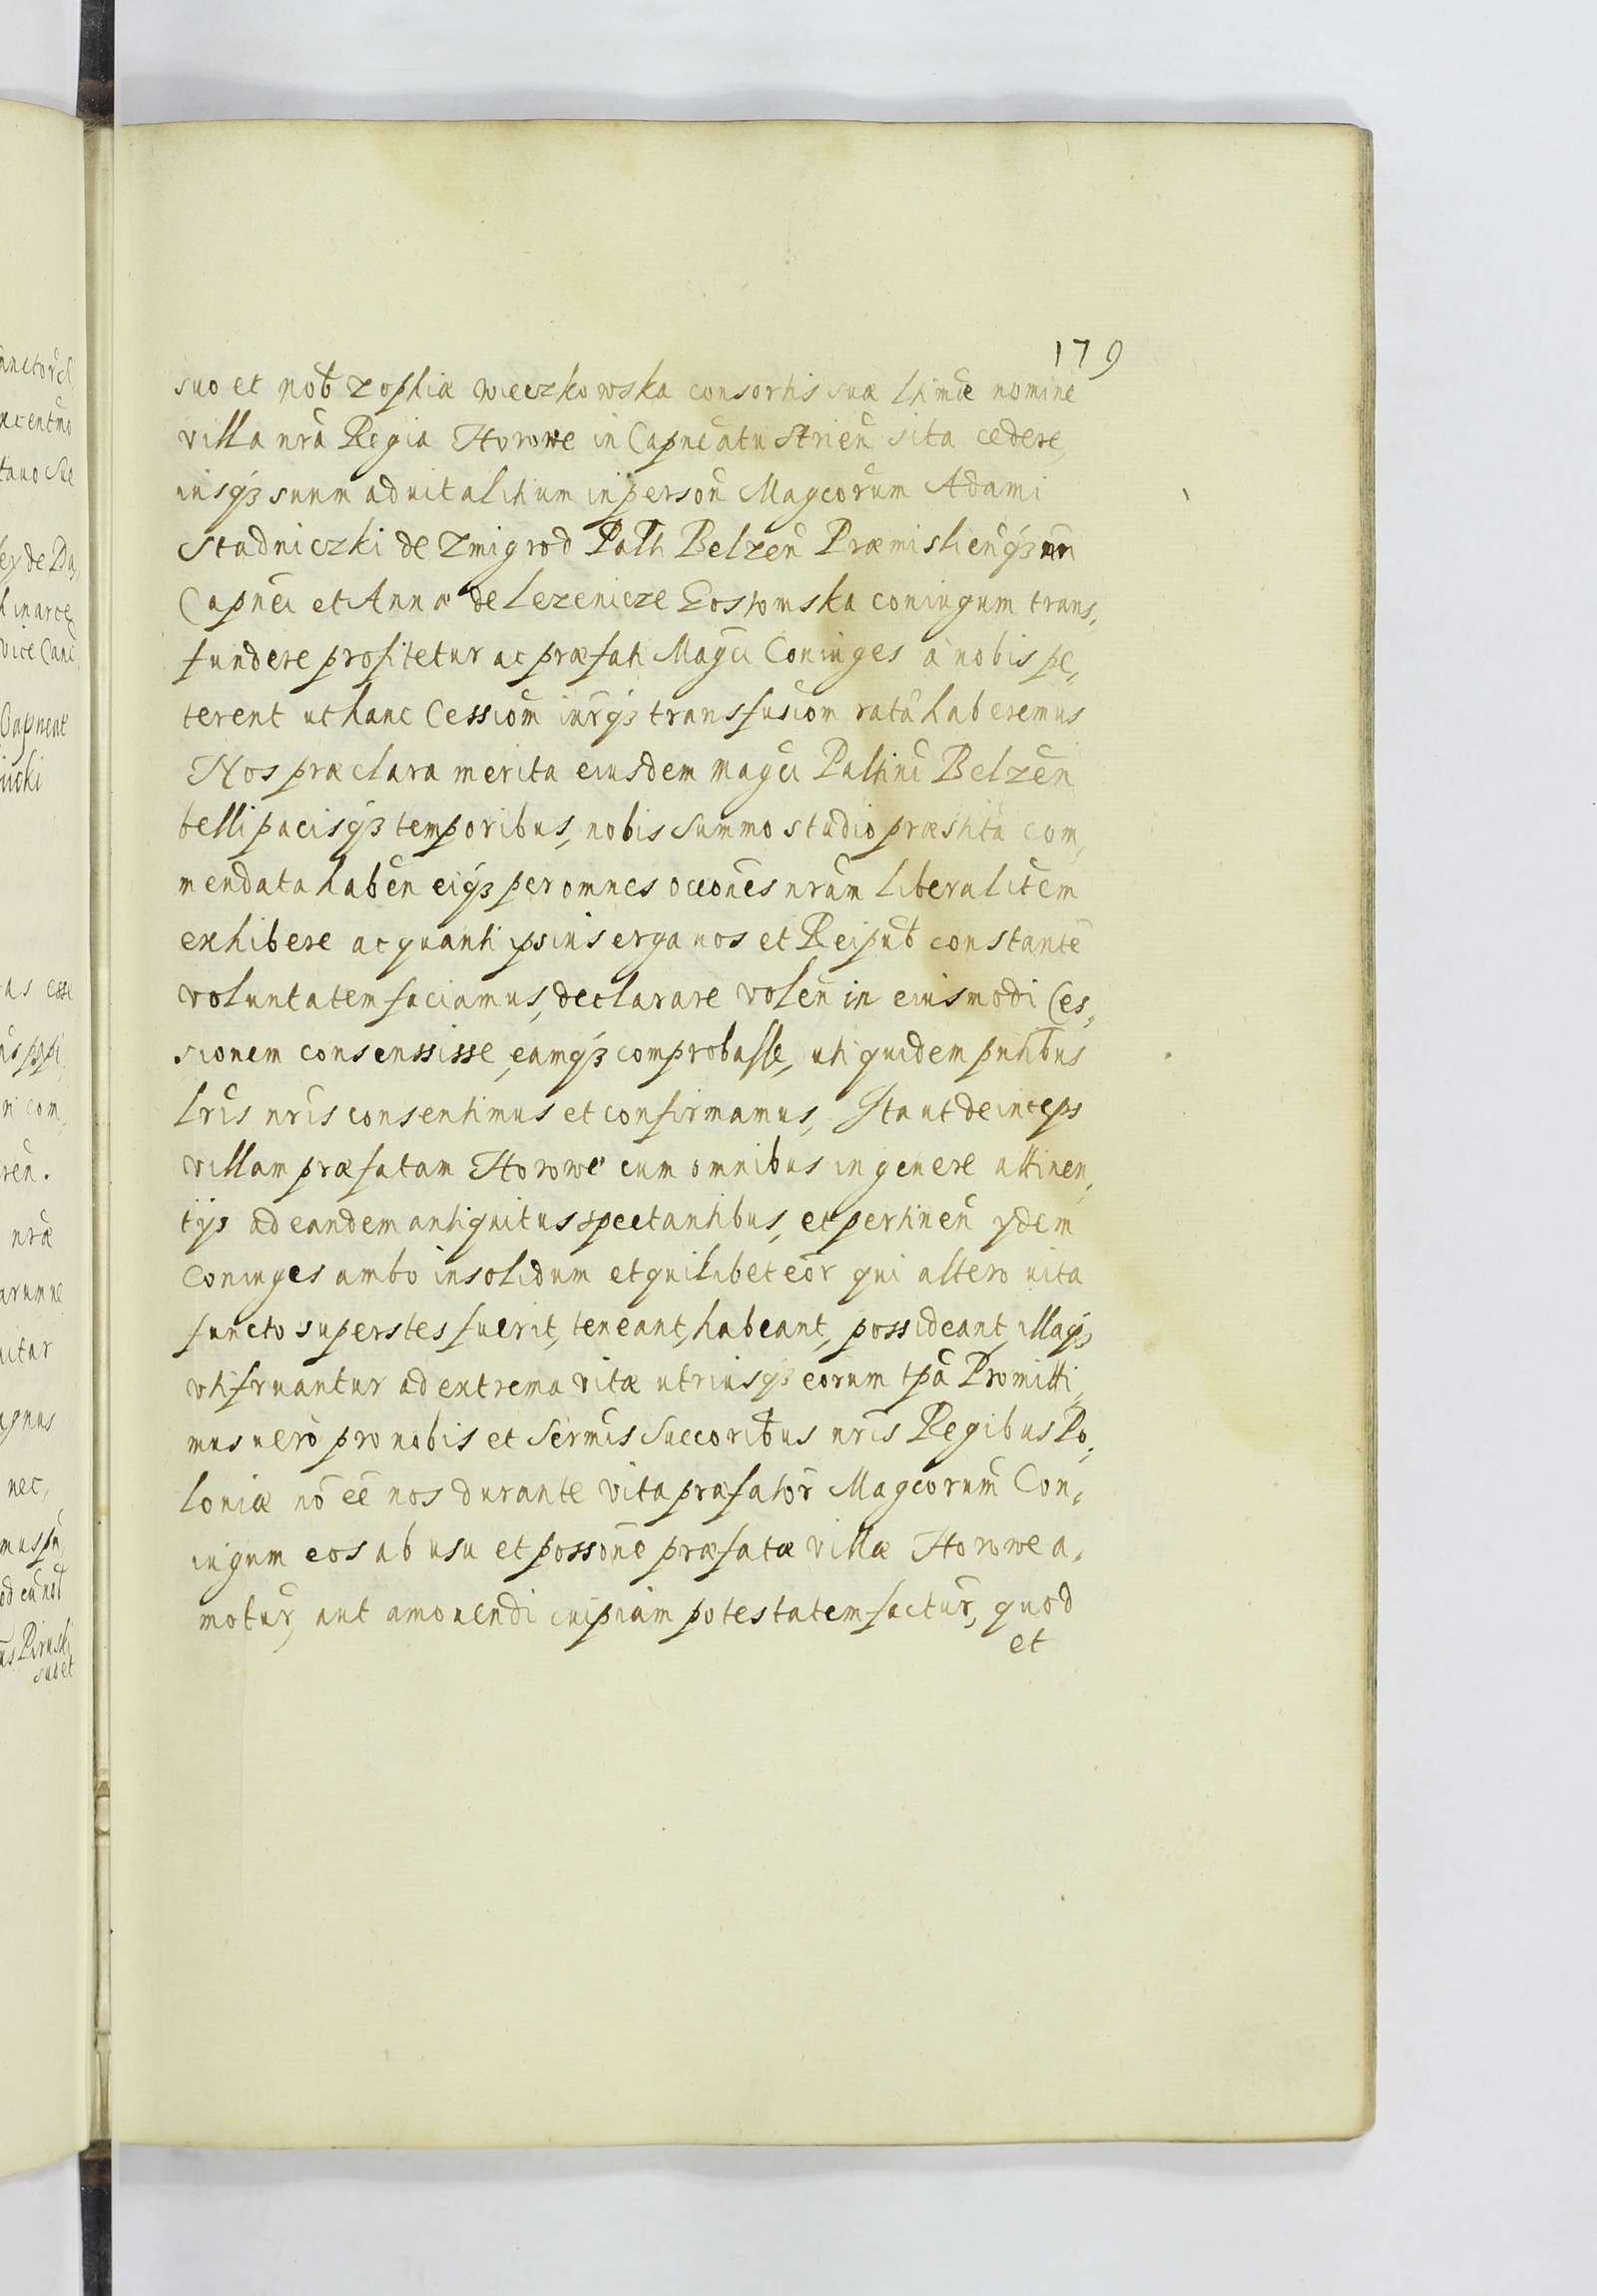 179
suo et Nob̃ Zophiæ Wieczkowska consortis suæ lt̃imæ nomine
villa nrã Regia Horowe in Capneatu Strień sita cedere
iusqȝ suum aduitalitium in personã Magcorum Adami
Stadniczki de Zmigrod Palti Belzeñ Præmislieñqȝ nri
Capnei et Annæ de Lezenicze Gostomska coniugum trans,
fundere profitetur ac præfati Magci Coniuges à nobis pe,
terent ut hanc Cessiom̃ iurqȝ transfusiom̃ ratã haberemus
Nos præclara merita eiusdem magci Paltini Belzeñ
belli pacisqȝ temporibus, nobis summo studio præstita com,
mendata habeñ eiqȝ per omnes occones nram̃ liberalitem
exhibere ac quanti ipsius erga nos et Reipub̃ constante
voluntatem faciamus, declarare voleñ in eiusmodi Ces,
sionem consenssisse, eamqȝ comprobasse, uti quidem pñtibus
lris̃ nris̃ consentimus et confirmamus, Ita ut deinceps
villam præfatam Horowe cum omnibus in genere attinen,
tijs ad eandem antiquitus spectantibus, et pertineñ ijdem
Coniuges ambo insolidum et quilibet eor̃ qui altero uita
functo superstes fuerit, teneant, habeant, possideant, illaqȝ
utifruantur ad extrema vitæ utriusqȝ eorum tpã Promitti,
mus uerò pro nobis et Sermis Succoribus nris̃ Regibus Po,
loniæ nõ eẽ nos durante vita præfator̃ Magcorum Con,
iugum eos ab usu et possone præfatæ villæ Horowe a,
motur, aut amouendi cuipiam potestatem factur, quod
et